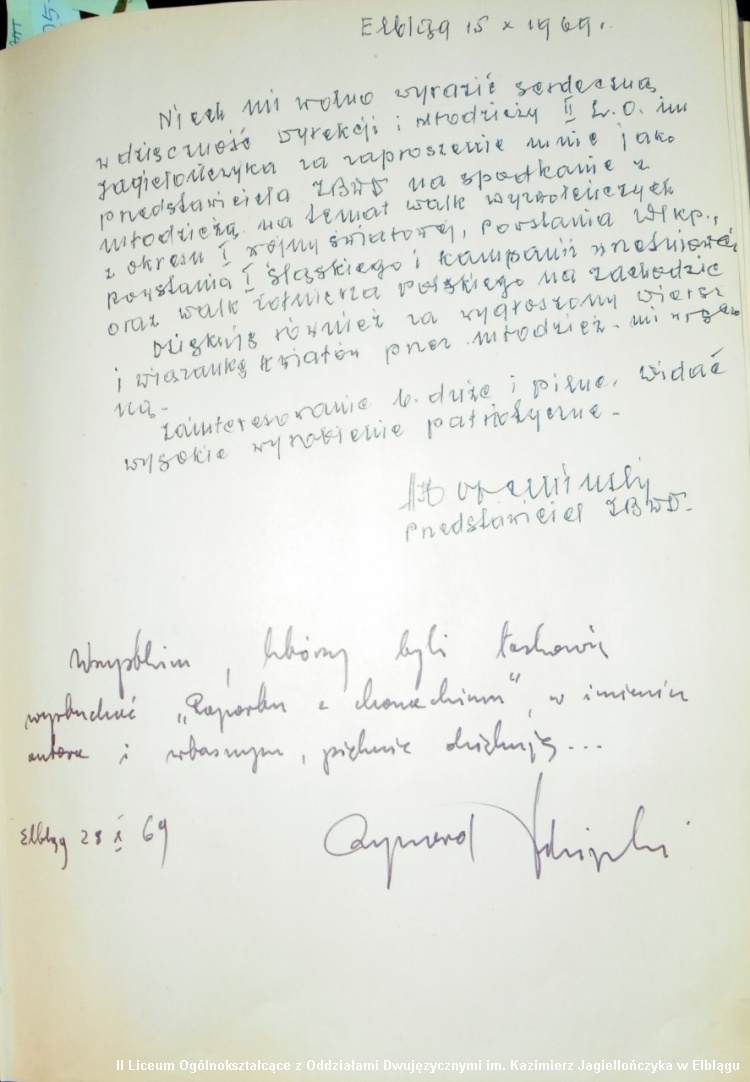 Elbląg 15 X 1969.
Niech mi wolno wyrazić serdeczną
wdzięczność Dyrekcji i Młodzieży II L.O. im
Jagiellończyka za zaproszenie mnie jako
przedstawiciela ZBWD na spotkanie z
młodzieżą na temat walk wyzwoleńczych
z okresu I wojny światowej, Powstania Wlkp.,
Powstania I Śląskiego i kampanii wrześniowej
oraz walk żołnierza Polskiego na zachodzie
Dziękuję również za wygłoszony wiersz
i wiązankę kwiatów przez młodzież mi wręczo
ną.
Zainteresowanie b. duże i pilne, widać
wysokie wyrobienie patriotyczne.
Przedstawiciel ZBWD.
Wszystkim, którzy byli łaskawie
wysłuchać „Raportu z Monachium", w imieniu
autora i własnym, pięknie dziękuję...
Elbląg 28 X 69
II Liceum Ogólnokształcące z Oddziałami Dwujęzycznymi im. Kazimierz Jagiellończyka w Elblągu